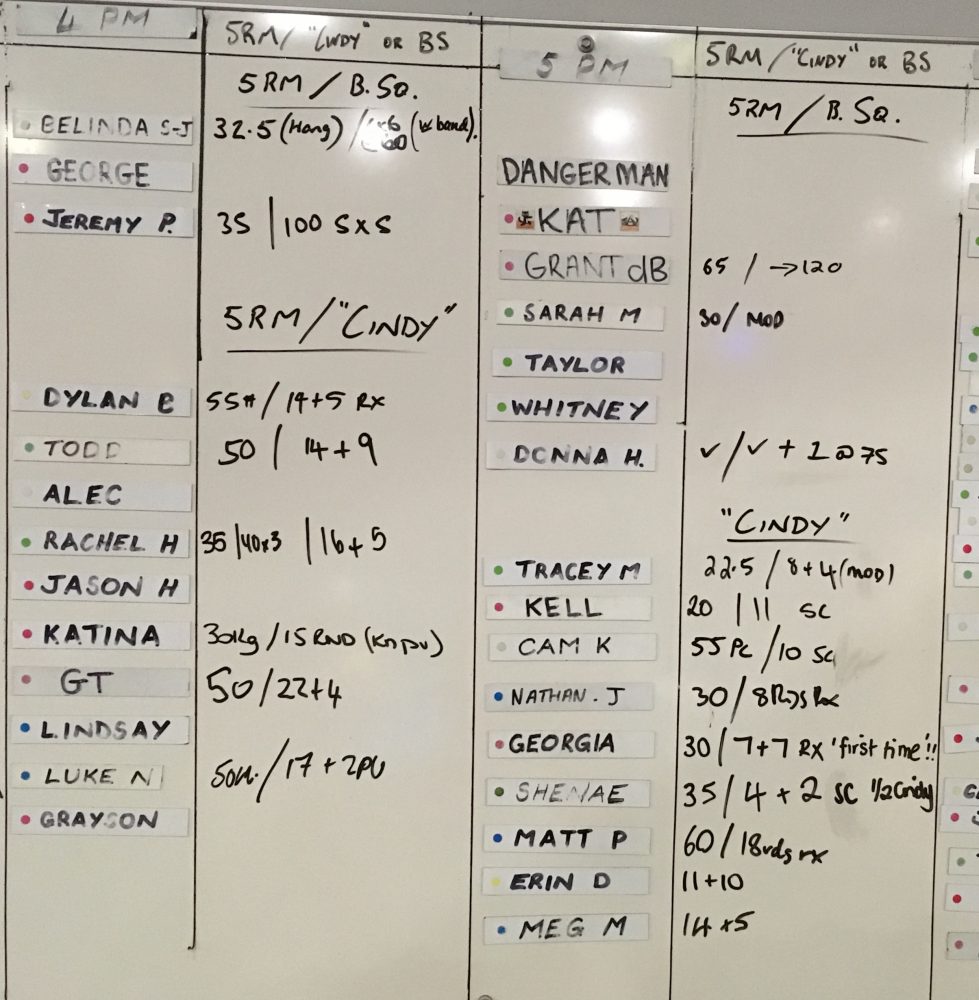 4 PM
5RM/"CINDY" OR BS
5RM / B.SQ.
BELINDA S-J 32.5 (Hang) / (w band).
GEORGE
JEREMY P. 35 | 100 5x5
5RM/"CINDY"
DYLAN B 55# / 14+5 RX
TODD 50 | 14+9
ALEC
RACHEL H 35 |40x3 | 16+5
JASON H
KATINA 30kg / 15 RND (Kn pu)
GT 50/22+4
LINDSAY
LUKE N 50kg. / 17 + 2PU
GRAYSON
5 PM
5RM / "CINDY" OR BS
5RM / B. SQ.
DANGERMAN
KAT
GRANT dB 65 / →120
SARAH M 30/ MOD
TAYLOR
WHITNEY
DONNA H. ✓/✓ + 1 @ 75
"CINDY"
TRACEY M 22.5 / 8+4 (MOD)
KELL 20 | 11 SC
CAM K 55 PC / 10 SC
NATHAN. J 30 / 8 Rds Rx
GEORGIA 30 / 7+7 RX 'first time'!!
SHENAE 35 / 4 + 2 SC 1/2 Cindy
MATT P 60 / 18rds rx
ERIN D 11+10
MEG M 14+5